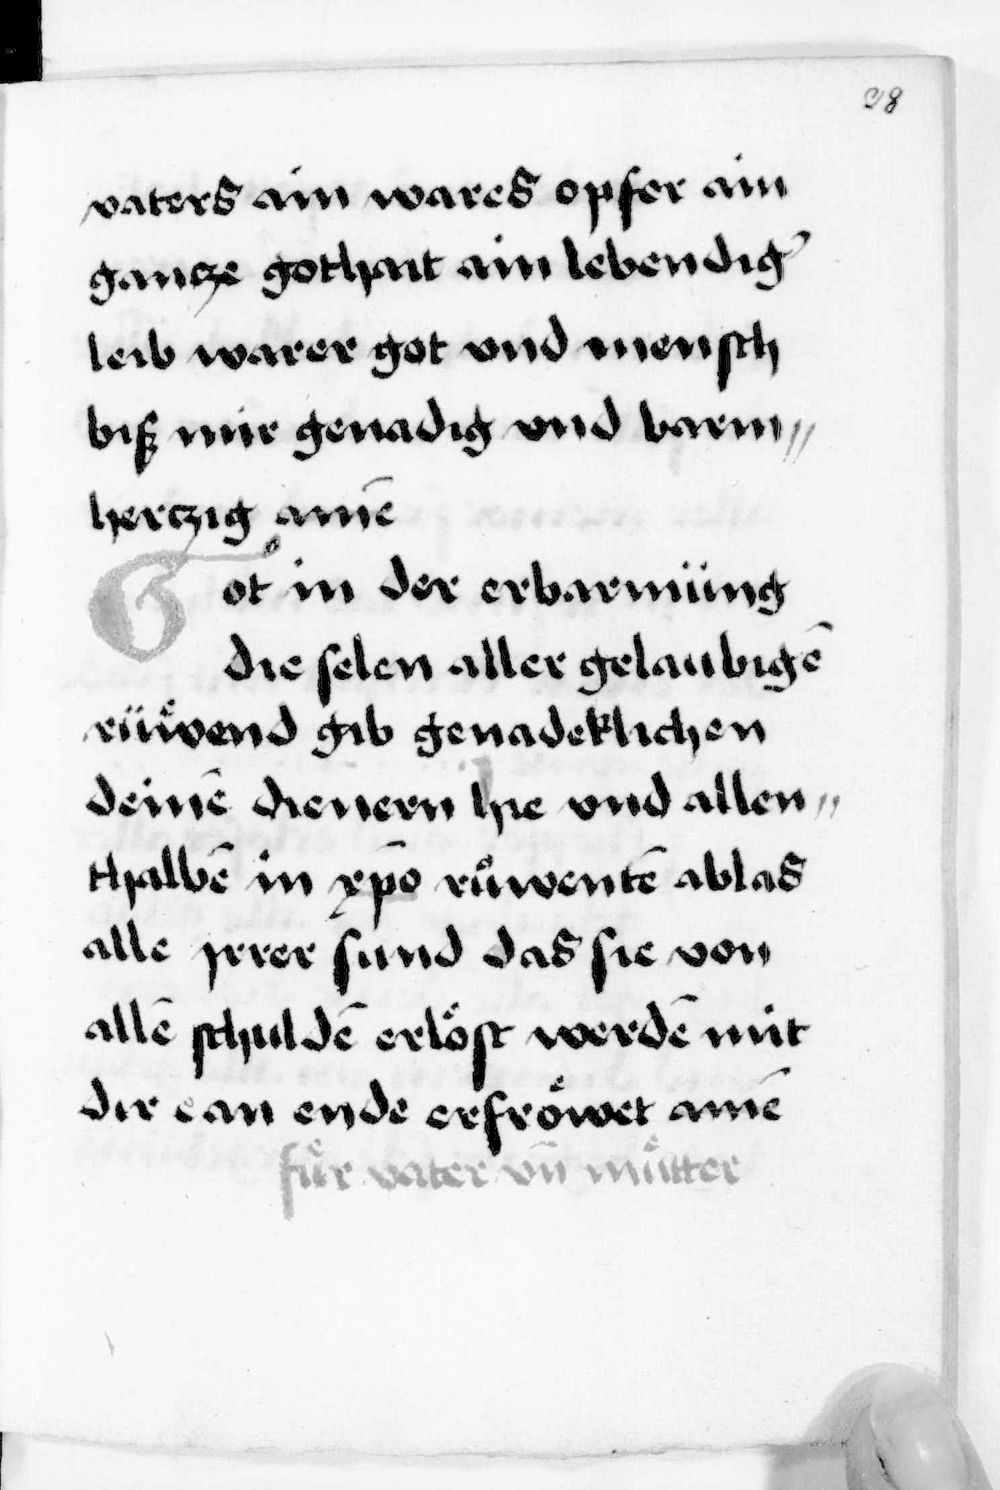 38
vaters ain wares opfer ain
gancze gothait ain lebendig᾽
leib warer got vnd mensch
biß mir genadig vnd barm〃
herczig amē
Got in der erbarmüng
die selen aller gelaubigē
rüͤwend gib genadeklichen
deinē dienern hie vnd allen〃
thalbē in xp̄o ruͦwentē ablas
alle yrrer sund das sie von
allē schuldē erloͤst werdē mit
dir ean ende erfroͤwet amē
fuͤr vater vn̄ muͤtter